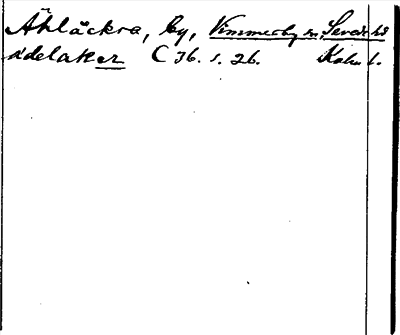 Åhläckra, by, Vimmerby sn, Sevede hd
ådelaker C 36. s. 26. Kalm. l.